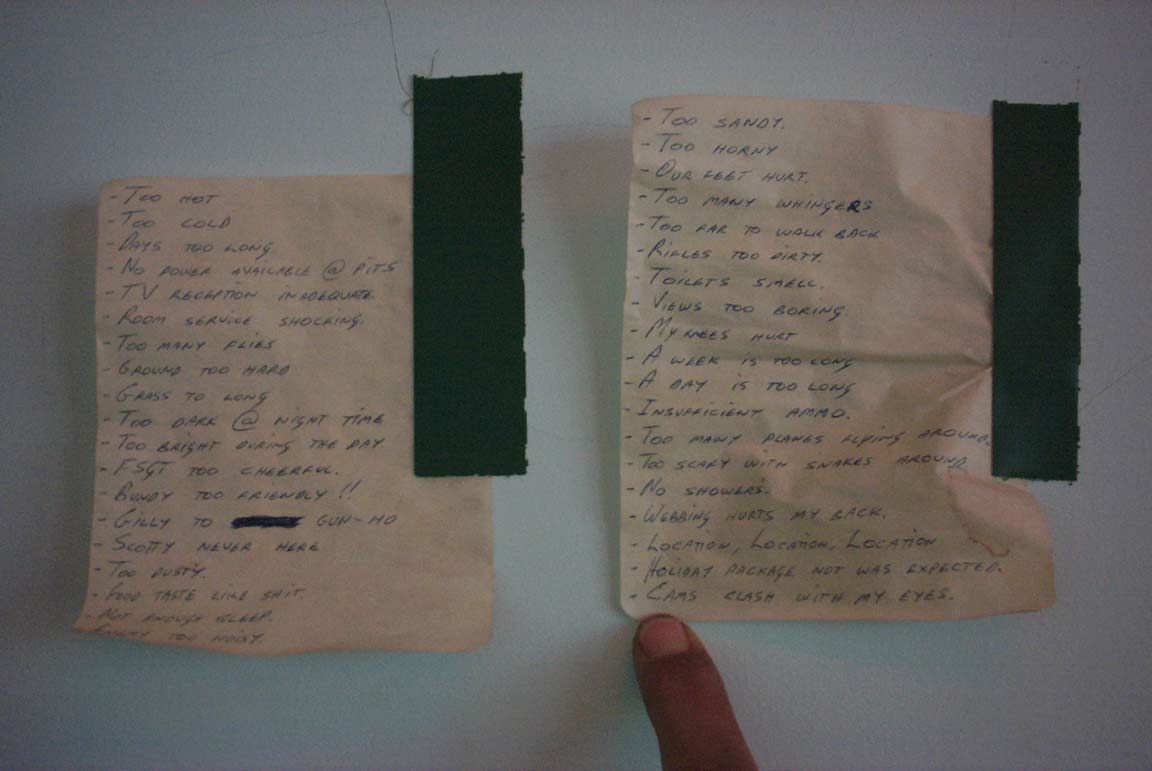 - TOO HOT
- TOO COLD
- DAYS TOO LONG
- NO POWER AVAILABLE @ PITS
- TV RECEPTION INADEQUATE
- ROOM SERVICE SHOCKING.
- TOO MANY FLIES
- GROUND TOO HARD
- GRASS TO LONG
- TOO DARK @ NIGHT TIME
- TOO BRIGHT DURING THE DAY.
- FSGT TOO CHEERFUL.
- BUNDY TOO FRIENDLY !!
- GILLY TO GUN-HO
- SCOTTY NEVER HERE
- TOO DUSTY.
- FOOD TASTE LIKE SHIT.
- NOT ENOUGH SLEEP.
TOO NOISY.
- TOO SANDY.
- TOO HORNY
- OUR FEET HURT.
- TOO MANY WHINGERS
- TOO FAR TO WALK BACK
- RIFLES TOO DIRTY.
- TOILETS SMELL.
- VIEWS TOO BORING.
- MY KNEES HURT
- A WEEK IS TOO LONG
- A DAY IS TOO LONG
- INSUFFICIENT AMMO.
- TOO MANY PLANES FLYING AROUND.
- TOO SCARY WITH SNAKES AROUND
- NO SHOWERS.
- WEBBING HURTS MY BACK.
- LOCATION, LOCATION, LOCATION
- HOLIDAY PACKAGE NOT WAS EXPECTED.
- CAMS CLASH WITH MY EYES.